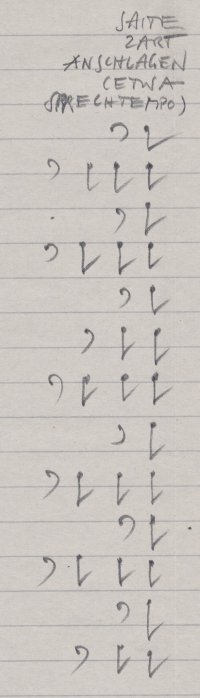 SAITE
ZART
ANSCHLAGEN
(ETWA
SPRECHTEMPO)